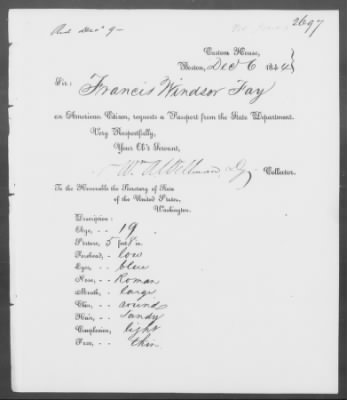 Recd Decr 9-
2697
Custom House,
Boston, Dec 6 1844
Sir:
Francis Windsor Fay
an American Citizen, requests a Passport from the State Department.
Very Respectfully,
Your Ob't Servant,
Wm A Wellman, Dy Collector.
To the Honorable the Secretary of State
of the United States,
Washington.
Description:
Age, - - 19
Stature, 5 feet in.
Forehead, - low
Eyes, - - blue
Nose, - - Roman
Mouth, - large
Chin, - - round
Hair, - - Sandy
Complexion, light
Face, - - thin